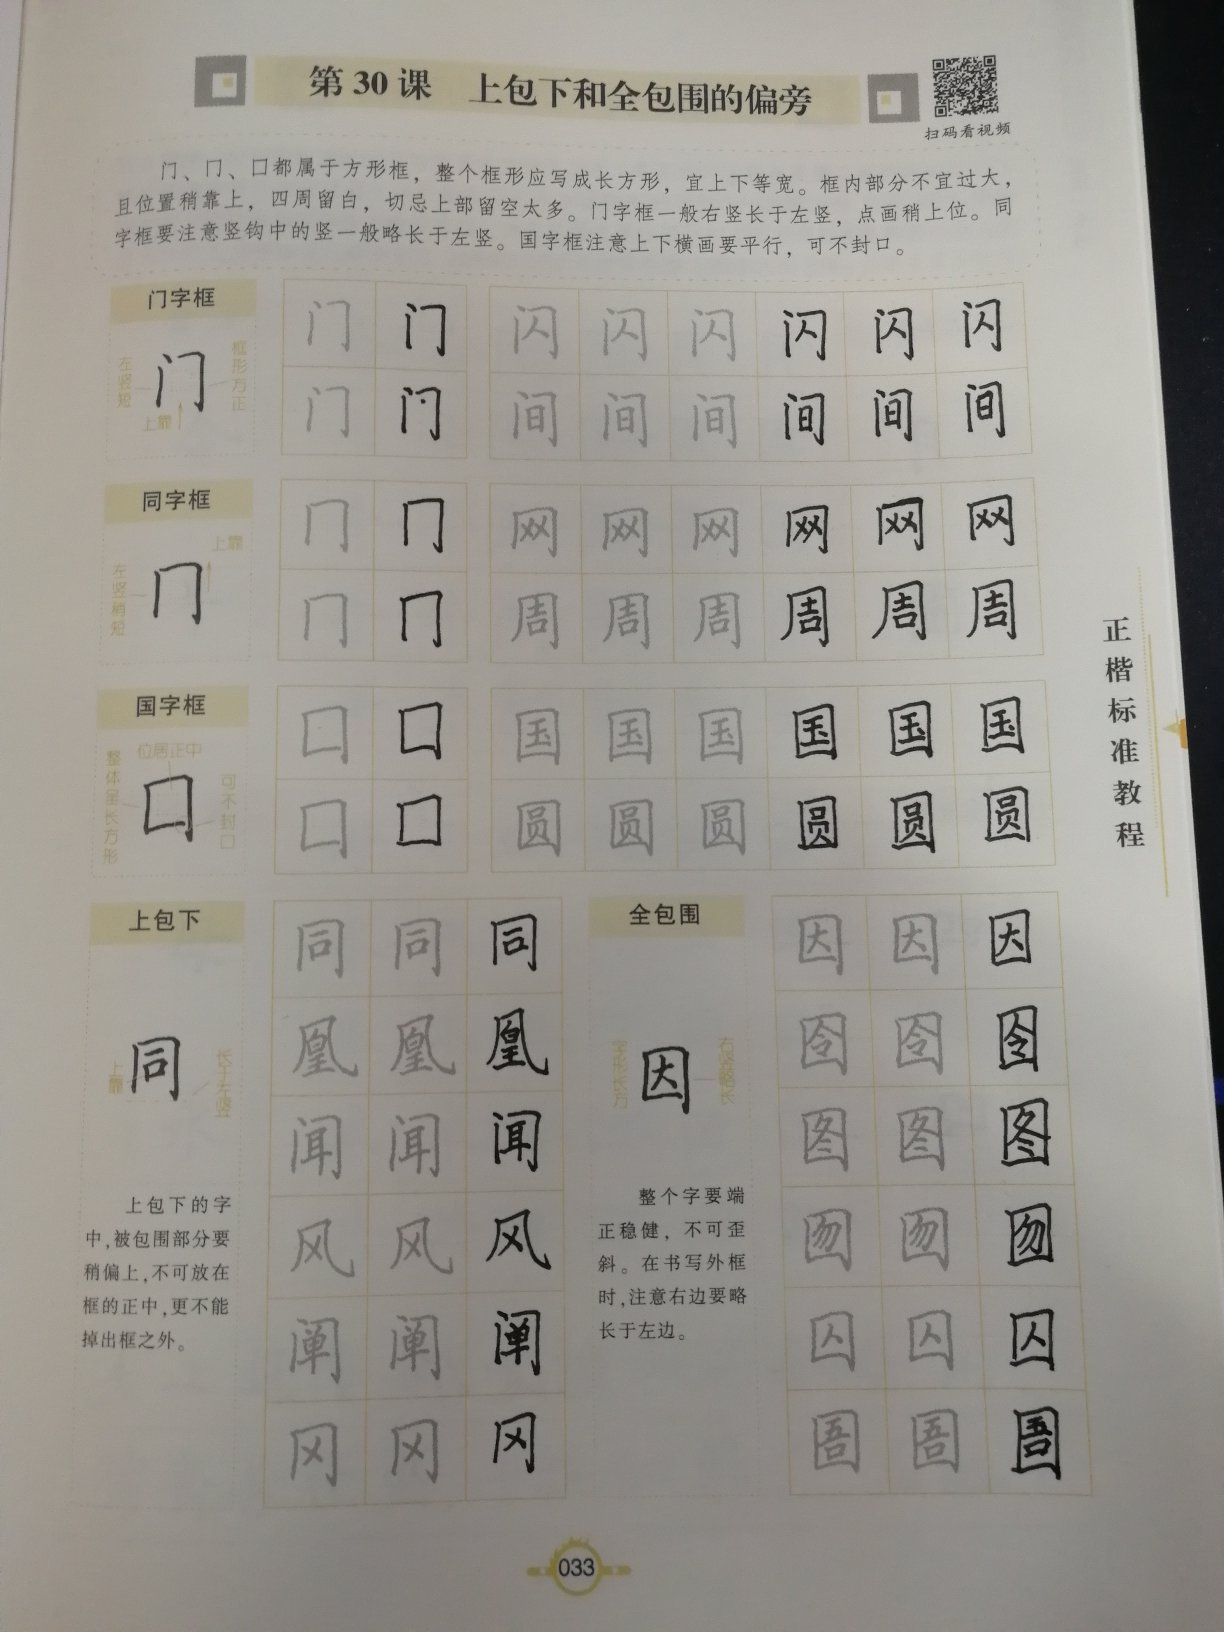 第30课 上包下和全包围的偏旁
扫码看视频
门、冂、囗都属于方形框，整个框形应写成长方形，宜上下等宽。框内部分不宜过大，
且位置稍靠上，四周留白，切忌上部留空太多。门字框一般右竖长于左竖，点画稍上位。同
字框要注意竖钩中的竖一般略长于左竖。国字框注意上下横画要平行，可不封口。
门字框
左竖短
门
框形方正
上靠
门 门 闪 闪 闪 闪 闪 闪
门 门 间 间 间 间 间 间
同字框
上靠
左竖稍短
冂
冂 冂 网 网 网 网 网 网
冂 冂 周 周 周 周 周 周
国字框
位居正中
整体呈长方形
囗
可不封口
囗 囗 国 国 国 国 国 国
囗 囗 圆 圆 圆 圆 圆 圆
正楷标准教程
上包下
上靠
同
长于左竖
上包下的字
中，被包围部分要
稍偏上，不可放在
框的正中，更不能
掉出框之外。
同 同 同
凰 凰 凰
闻 闻 闻
风 风 风
阐 阐 阐
冈 冈 冈
全包围
字形长方
因
右竖略长
整个字要端
正稳健，不可歪
斜。在书写外框
时，注意右边要略
长于左边。
因 因 因
囹 囹 囹
图 图 图
囫 囫 囫
囚 囚 囚
圄 圄 圄
033